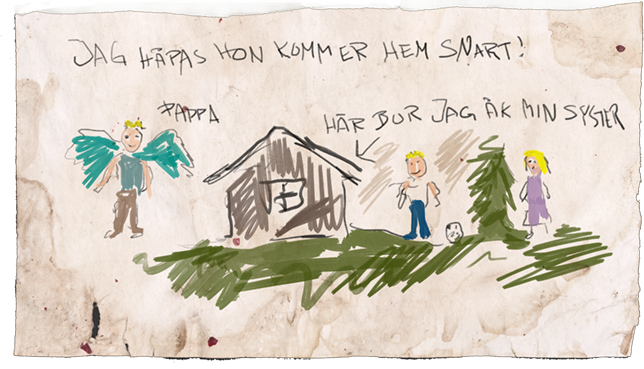 JAG HÅPAS HON KOMMER HEM SNART!
PAPPA
HÄR BOR JAG ÅK MIN SYSTER